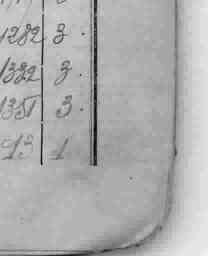 1282 3.
1332 3.
1351 3.
93 1